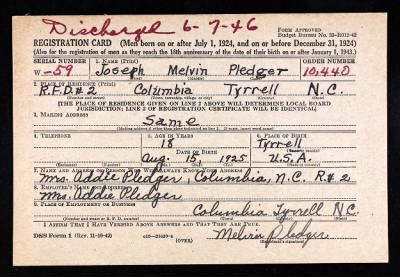 Discharged 6-7-46
FORM APPROVED
Budget Bureau No. 33-R012-42
REGISTRATION CARD (Men born on or after July 1, 1924, and on or before December 31, 1924)
(Also for the registration of men as they reach the 18th anniversary of the date of their birth on or after January 1, 1943.)
SERIAL NUMBER 1. NAME (Print) ORDER NUMBER
W-59 Joseph Melvin Pledger 10,440
(First) (Middle) (Last)
2. PLACE OF RESIDENCE (Print)
R.F.D.#2 Columbia Tyrrell N.C.
(Number and street) (Town, township, village, or city) (County) (State)
[THE PLACE OF RESIDENCE GIVEN ON LINE 2 ABOVE WILL DETERMINE LOCAL BOARD
JURISDICTION; LINE 2 OF REGISTRATION CERTIFICATE WILL BE IDENTICAL]
3. MAILING ADDRESS
Same
4. TELEPHONE 5. AGE IN YEARS 6. PLACE OF BIRTH
18 Tyrrell
DATE OF BIRTH
Aug. 15 1925 U.S.A.
7. NAME AND ADDRESS OF PERSON WHO WILL ALWAYS KNOW YOUR ADDRESS
Mrs. Addie Pledger, Columbia, N.C. R#2
8. EMPLOYER'S NAME AND ADDRESS
Mrs. Addie Pledger
9. PLACE OF EMPLOYMENT OR BUSINESS
Columbia Tyrrell N.C.
(Number and street or R. F. D. number) (Town) (County) (State)
I AFFIRM THAT I HAVE VERIFIED ABOVE ANSWERS AND THAT THEY ARE TRUE.
DSS Form 1 (Rev. 11-16-42) (OVER) Melvin Pledger